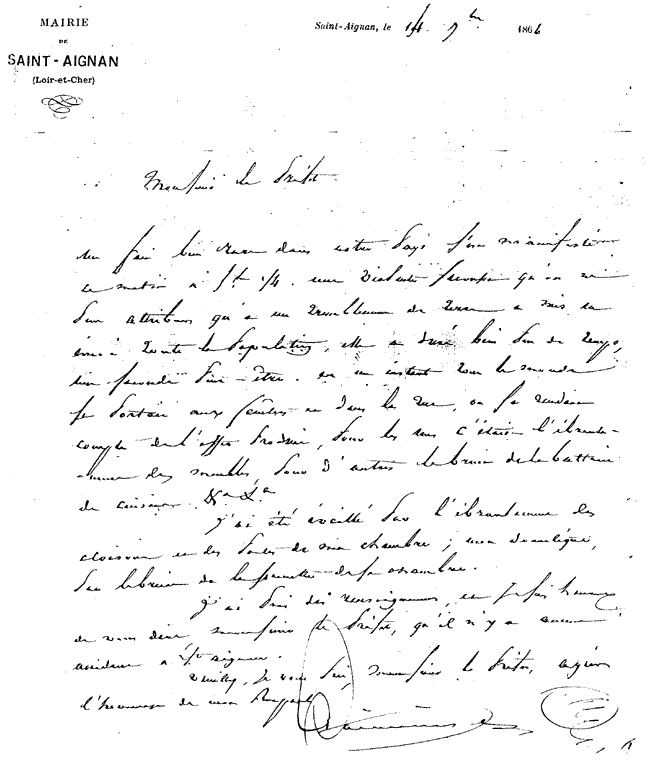 MAIRIE
DE
SAINT-AIGNAN
(Loir-et-Cher)
Saint-Aignan, le 14 7bre 1866
Monsieur le Préfet
un fait bien rare dans notre Pays s'est manifesté
ce matin à 5h 1/4. une violente secousse qu'on ne
Peut attribuer qu'à un tremblement de terre a mis en
émoi toute la Population, elle a duré bien Peu de temps,
une seconde Peut-être. en un instant tout le monde
se Portait aux fenêtres ou dans la rue, on se rendait
compte de l'effet Produit, Pour les uns c'était l'ébranle-
-ment des meubles, Pour d'autres le bruit de la batterie
de cuisine &a &a
j'ai été éveillé Par l'ébranlement des
cloisons et des Portes de ma chambre ; mon domestique,
Par le bruit de la sonnette de sa chambre.
j'ai Pris des renseignements, et je suis heureux
de vous dire monsieur le Préfet, qu'il n'y a aucun
accident à St aignan.
Veuillez, je vous Prie, monsieur le Préfet, agréer
l'hommage de mon Respect